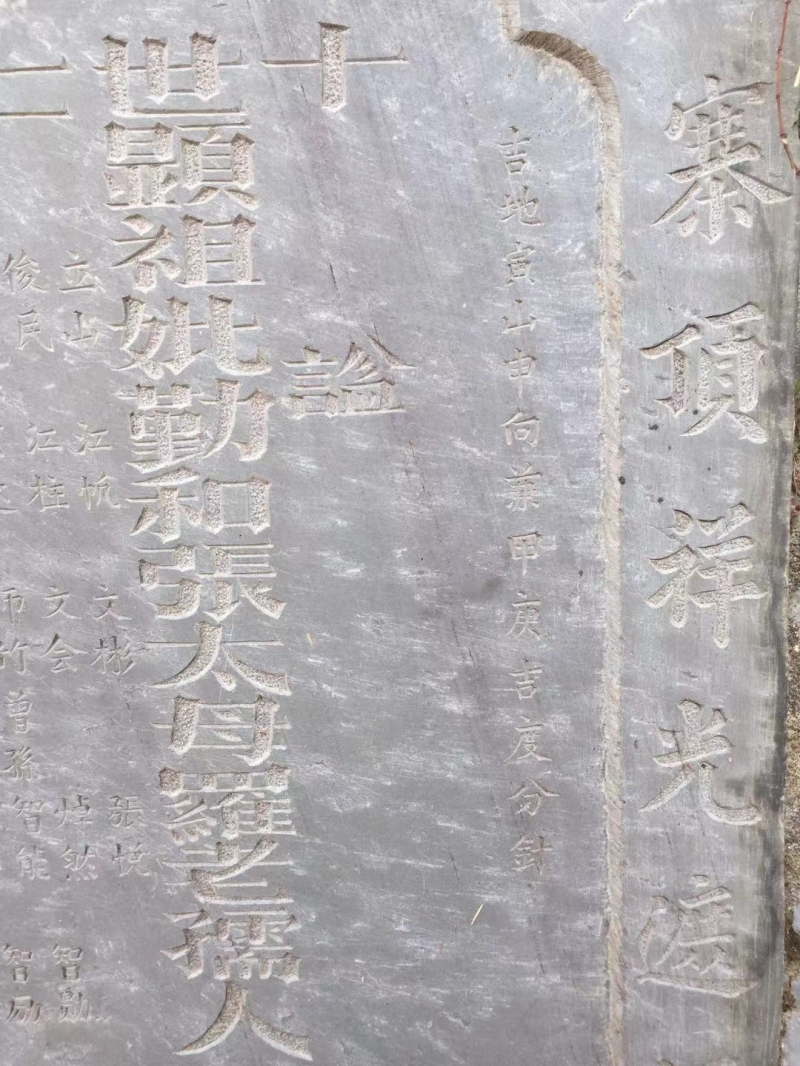 寨頂祥光遮
吉地寅山申向兼甲庚吉度分針
十 謚
世顯祖妣勤和張太母羅老孺人
二
張悅
文彬
江帆
立山
焯然
智勛
文会
江柱
俊民
曾孫智能
智励
竹